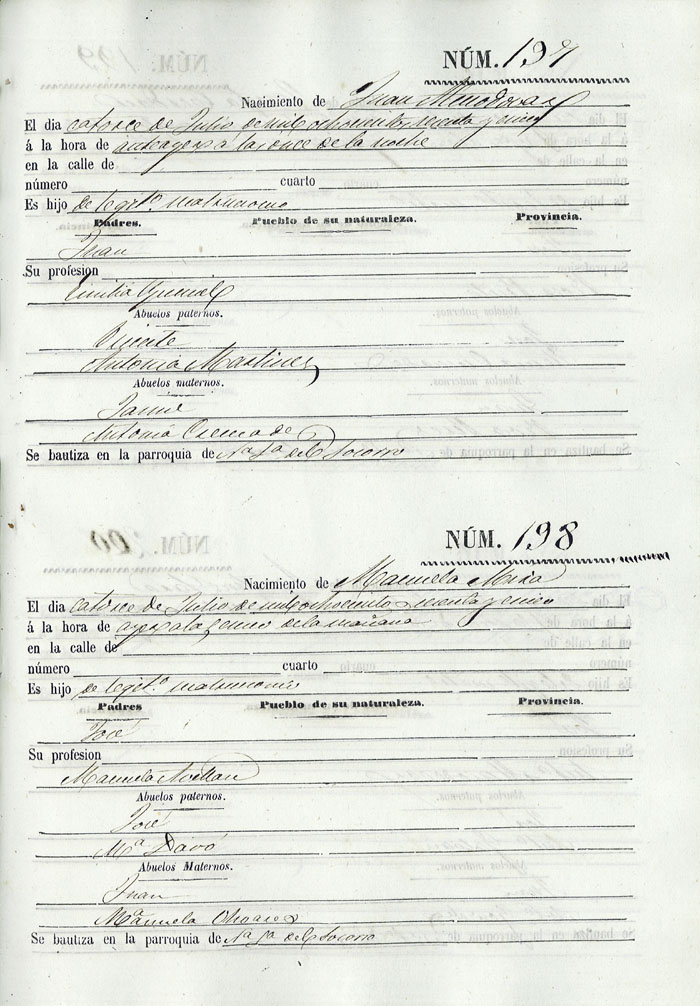 NÚM. 197
Nacimiento de Juan
El dia catorce de Julio de mil ochocientos sesenta y cinco
á la hora de anteayer a las once de la noche
en la calle de
número cuarto
Es hijo de legit.º matrimonio
Padres. Pueblo de su naturaleza. Provincia.
Juan
Su profesion
Emilia
Abuelos paternos.
Vicente
Antonia Martinez
Abuelos maternos.
Jaime
Antonia Cremades
Se bautiza en la parroquia de Nª Sª del Socorro
NÚM. 198
Nacimiento de Manuela Mira
El dia catorce de Julio de mil ochocientos sesenta y cinco
á la hora de ayer a las cinco de la mañana
en la calle de
número cuarto
Es hijo de legit.º matrimonio
Padres Pueblo de su naturaleza. Provincia.
José
Su profesion
Manuela Avellan
Abuelos paternos.
José
Mª Davó
Abuelos Maternos.
Juan
Manuela
Se bautiza en la parroquia de Nª Sª del Socorro